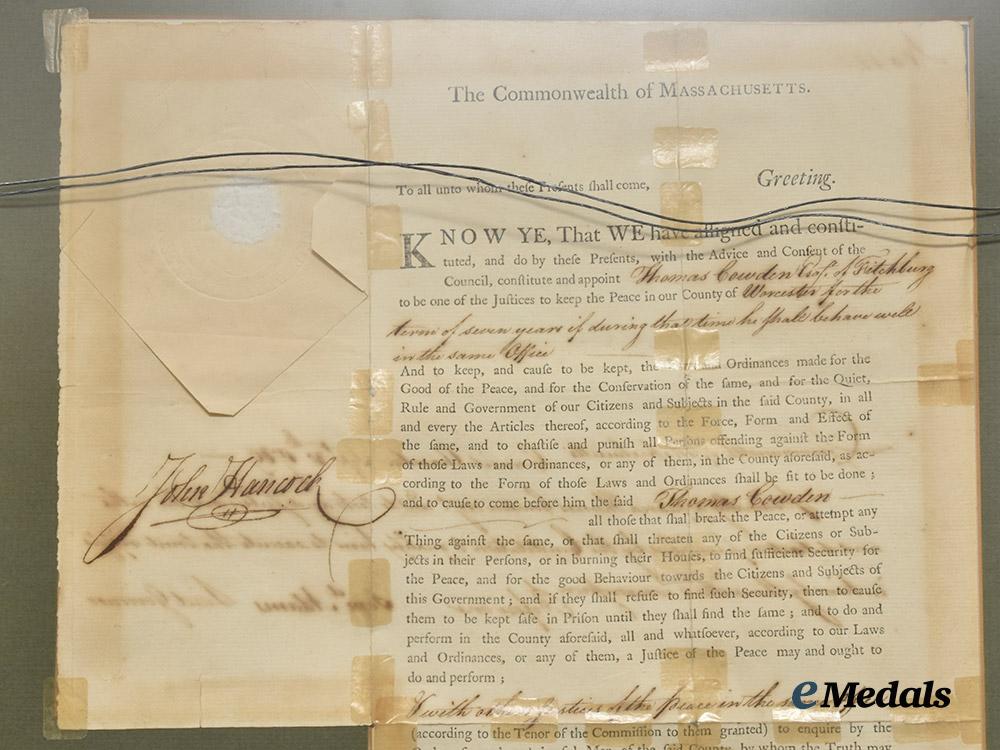 The Commonwealth of MASSACHUSETTS.
To all unto whom theſe Preſents ſhall come,
Greeting.
KNOW YE, That WE have aſſigned and conſti-
tuted, and do by theſe Preſents, with the Advice and Conſent of the
Council, conſtitute and appoint Thomas Cowden Esqr. of Fitchburg
to be one of the Juſtices to keep the Peace in our County of Worcester for the
term of seven years if during that time he ſhall behave well
in the same Office
And to keep, and cauſe to be kept, the and Ordinances made for the
Good of the Peace, and for the Conſervation of the ſame, and for the Quiet,
Rule and Government of our Citizens and Subjects in the ſaid County, in all
and every the Articles thereof, according to the Force, Form and Effect of
the ſame, and to chaſtiſe and puniſh all Perſons offending againſt the Form
of thoſe Laws and Ordinances, or any of them, in the County aforeſaid, as ac-
cording to the Form of thoſe Laws and Ordinances ſhall be fit to be done ;
and to cauſe to come before him the ſaid Thomas Cowden
all thoſe that ſhal break the Peace, or attempt any
Thing againſt the ſame, or that ſhall threaten any of the Citizens or Sub-
jects in their Perſons, or in burning their Houſes, to find ſufficient Security for
the Peace, and for the good Behaviour towards the Citizens and Subjects of
this Government ; and if they ſhall refuſe to find ſuch Security, then to cauſe
them to be kept ſafe in Priſon until they ſhall find the ſame ; and to do and
perform in the County aforeſaid, all and whatſoever, according to our Laws
and Ordinances, or any of them, a Juſtice of the Peace may and ought to
do and perform ;
& with other Justices of the peace in the
(according to the Tenor of the Commiſſion to them granted) to enquire by the
of the ſaid County, by whom the Truth may
John Hancock
eMedals